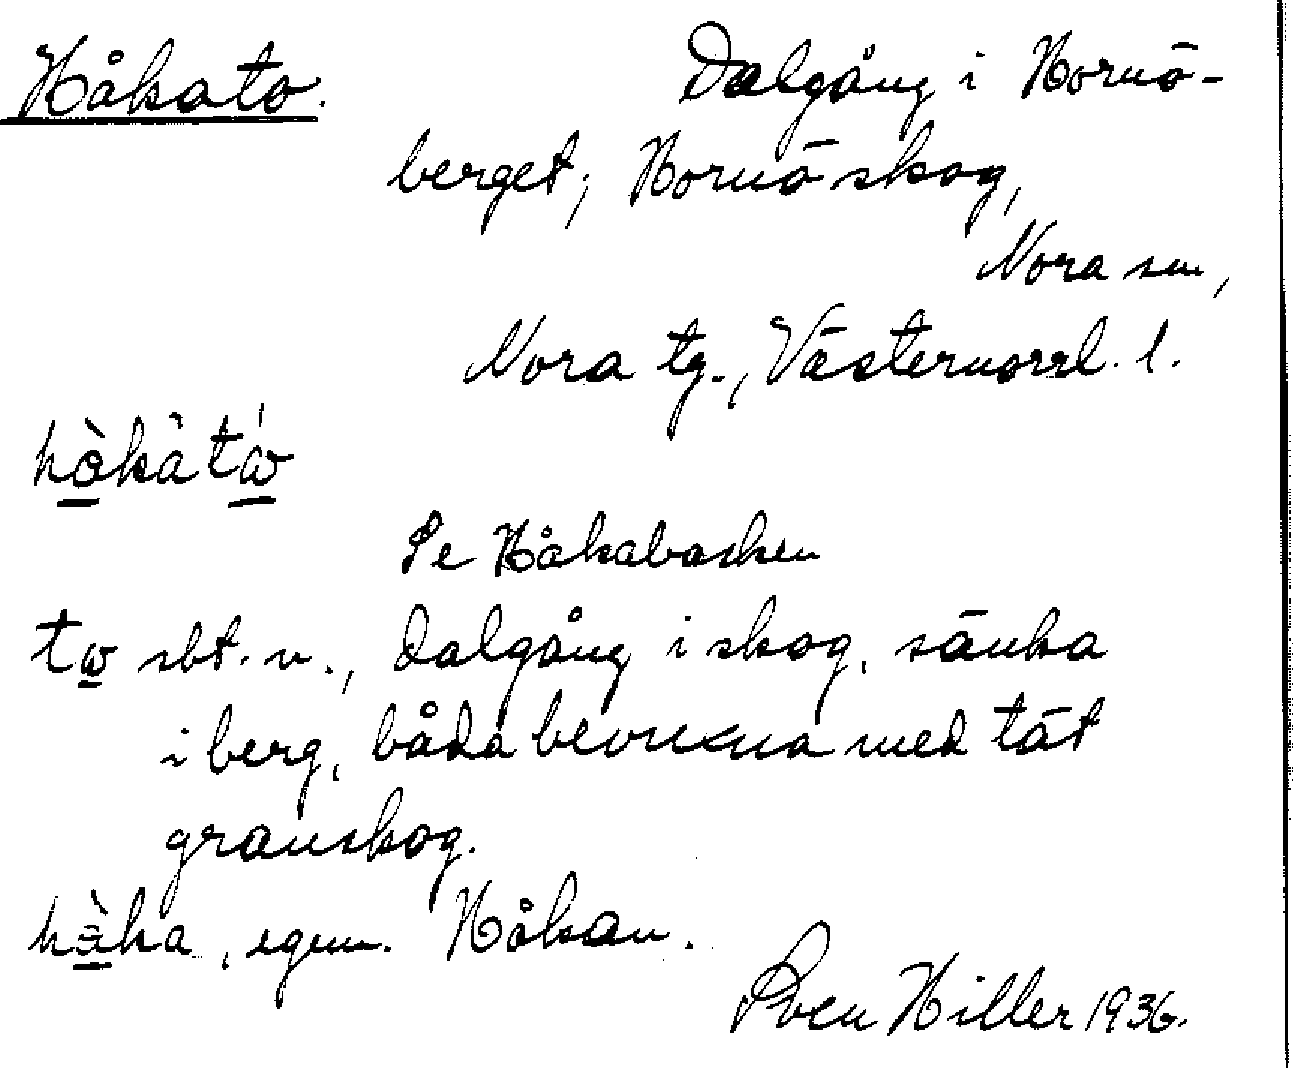 Håkato. Dalgång i Hornö-
berget; Hornö skog,
Nora sn,
Nora tg., Västernorrl. l.
hòkàtó
Se Håkabacken
to sbt. n., dalgång i skog, sänka
i berg, båda bevuxna med tät
granskog.
hàka, egenn. Håkan.
Sven Hiller 1936.